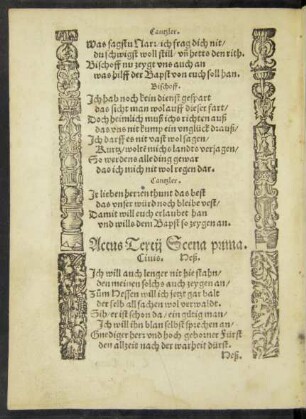 Cantzler.
Was sagstu Narr / ich frag dich nit /
du schwigst woll still / vñ hetts den rith.
Bischoff nu zeygt vns auch an
was hilff der Bapst von euch soll han.
Bischoff.
Ich hab noch kein dienst gespart
das sicht man wol auff dieser fart /
Doch heimlich muß ichs richten auß
das vns nit kump ein vnglück drauß /
Ich darff es nit vast wol sagen /
Kurtz / wolt michs landts verjagen /
So werdens alle ding gewar
das ich mich nit wol regen dar.
Cantzler.
Ir lieben herren thunt das best
das vnser würd noch bleibe vest /
Damit will euch erlaubet han
vnd wills dem Bapst so zeygen an.
Actus Tertij Scena prima.
Ciuis. Heß.
Ich will auch lenger nit hie stahn /
den meinen solchs auch zeygen an /
Zům Hessen will ich jetzt gar balt
der selb all sachen wol verwaldt.
Sih / er ist schon da / ein gütig man /
Ich will ihn blan selbst sprechen an /
Gnediger herr vnd hoch geborner Fürst
den allzeit nach der warheit dürst.
Heß.